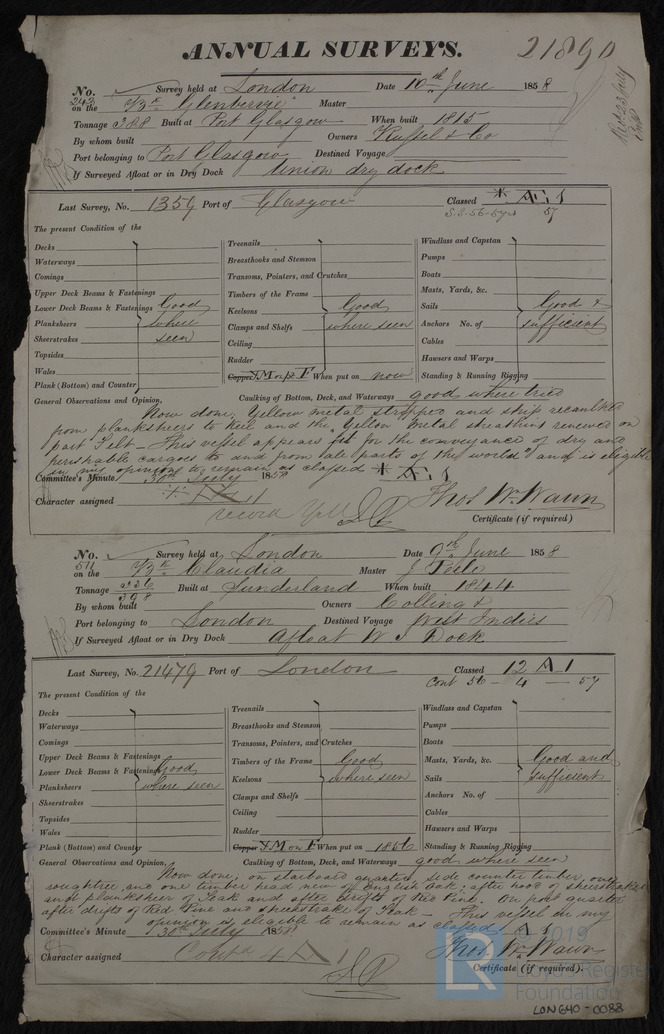 ANNUAL SURVEYS.
21890
No. 243 Survey held at London Date 10th June 1858
on the Glenbervie Master
Tonnage 388 Built at Port Glasgow When built 1815
By whom built Owners Russel & Co
Port belonging to Port Glasgow Destined Voyage
If Surveyed Afloat or in Dry Dock Union dry dock
Last Survey, No. 1359 Port of Glasgow Classed * Æ 1
S.S. 56-5yrs 57
The present Condition of the
Decks
Waterways
Comings
Upper Deck Beams & Fastenings
Lower Deck Beams & Fastenings Good
Planksheers where
Sheerstrakes seen
Topsides
Wales
Plank (Bottom) and Counter
Treenails
Breasthooks and Stemson
Transoms, Pointers, and Crutches
Timbers of the Frame
Keelsons Good
Clamps and Shelfs where seen
Ceiling
Rudder
Copper Y.M on F When put on now
Windlass and Capstan
Pumps
Boats
Masts, Yards, &c.
Sails Good &
Anchors No. of sufficient
Cables
Hawsers and Warps
Standing & Running Rigging
General Observations and Opinion, Caulking of Bottom, Deck, and Waterways good where tried
Now done, Yellow metal stripped and ship recaulked
from planksheers to keel and the Yellow metal sheathing renewed on
part Felt – This vessel appears fit for the conveyance of dry and
perishable cargoes to and from all parts of the world and is eligible
in my opinion to remain as classed * Æ 1
Committee's Minute 30th July 1858
Character assigned * Æ 1 Thos Wm Wawn
record Y Certificate (if required)
No. 511 Survey held at London Date 9th June 1858
on the Claudia Master J Peele
Tonnage 336 398 Built at Sunderland When built 1844
By whom built Owners Colling &
Port belonging to London Destined Voyage West Indies
If Surveyed Afloat or in Dry Dock Afloat W I Dock
Last Survey, No. 21479 Port of London Classed 12 A 1
Cont 56 – 4 – 57
The present Condition of the
Decks
Waterways
Comings
Upper Deck Beams & Fastenings
Lower Deck Beams & Fastenings Good
Planksheers where seen
Sheerstrakes
Topsides
Wales
Plank (Bottom) and Counter
Treenails
Breasthooks and Stemson
Transoms, Pointers, and Crutches
Timbers of the Frame Good
Keelsons where seen
Clamps and Shelfs
Ceiling
Rudder
Copper Y.M on F When put on 1856
Windlass and Capstan
Pumps
Boats
Masts, Yards, &c. Good and
Sails sufficient
Anchors No. of
Cables
Hawsers and Warps
Standing & Running Rigging
General Observations and Opinion, Caulking of Bottom, Deck, and Waterways good where seen
Now done, on starboard quarter, side counter timber, one
roughtree, and one timber head new of English Oak; after hood of sheerstrake
and planksheer of Teak and after drifts of Red Pine. On port quarter
after drifts of Red Pine and sheerstrake of Teak – This vessel in my
opinion is eligible to remain as classed A 1
Committee's Minute 30th July 1858
Character assigned Contd 4 A 1 Thos Wm Wawn
Certificate (if required).
© 2019
LR Lloyd's Register
Foundation
LON640-0088